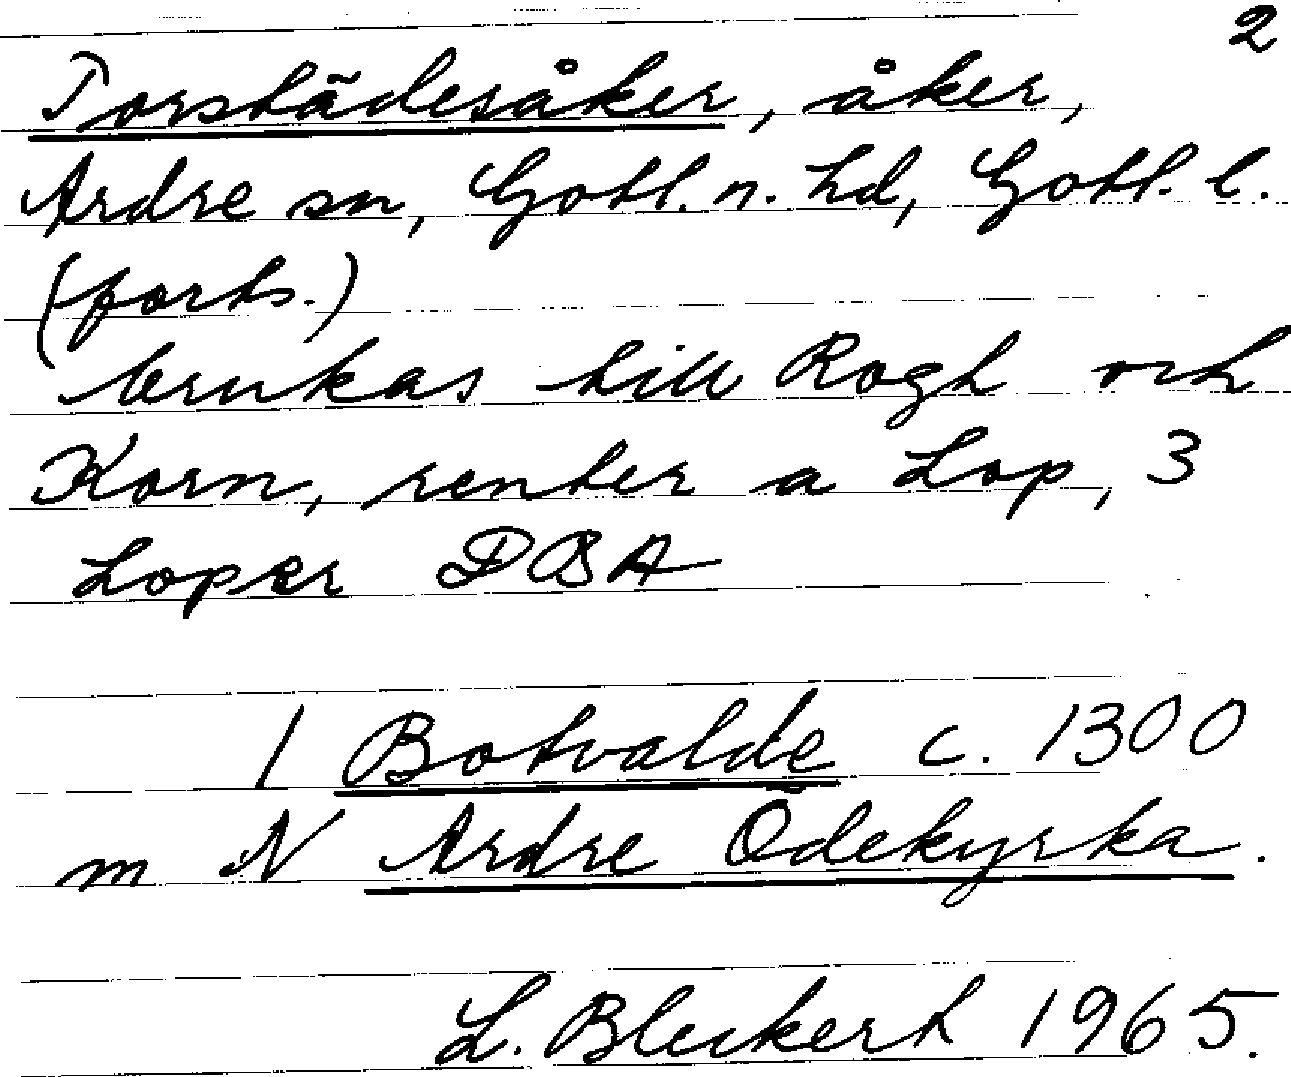 2
Torstädesåker, åker,
Ardre sn, Gotl. n. hd, Gotl. l.
(forts.)
brukas till Rogh och
Korn, renter a Lop, 3
Loper DBA
1 Botvalde c. 1300
m N Ardre Ödekyrka.
L. Bleckert 1965.